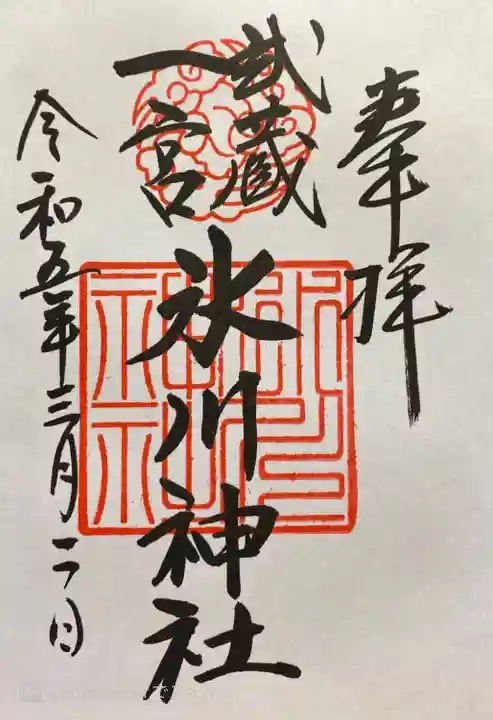 奉拝
武蔵
一宮
氷川神社
令和五年三月二日